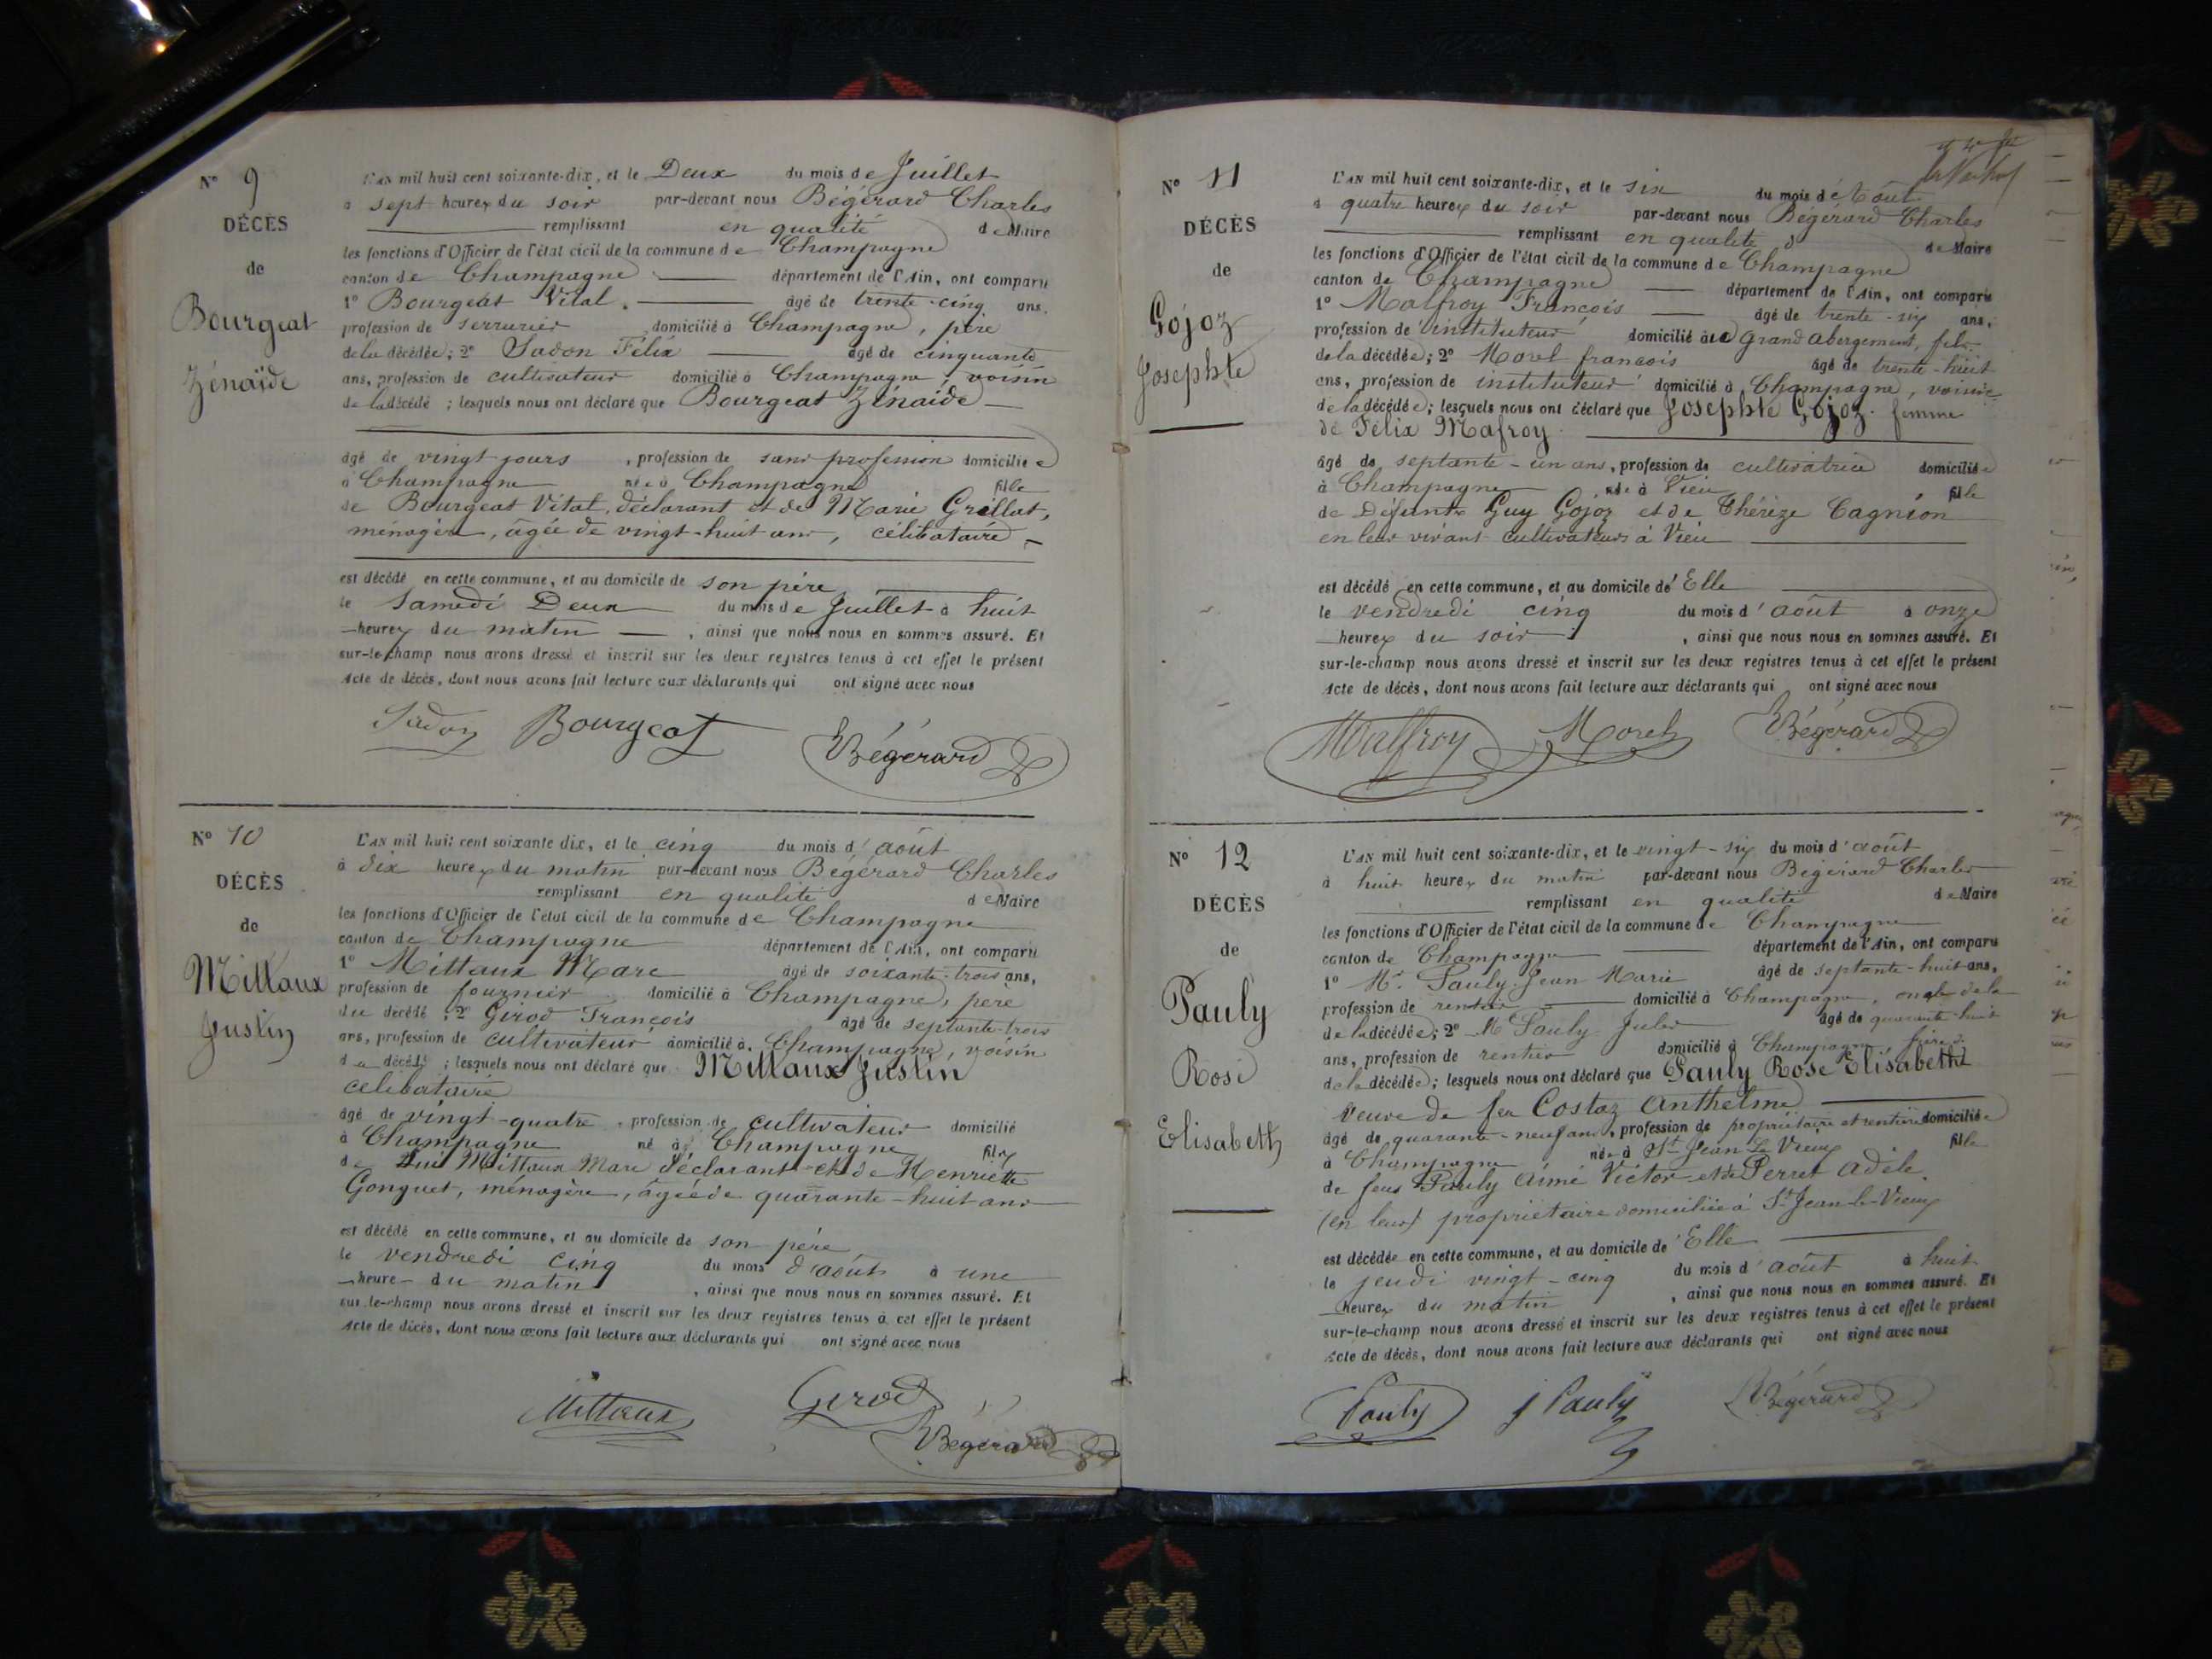 N° 9
DÉCÈS
de
Bourgeat
Zénaïde
L'AN mil huit cent soixante-dix, et le Deux du mois de Juillet
à sept heures du soir par-devant nous Bégérard Charles
remplissant en qualité de Maire
les fonctions d'Officier de l'état civil de la commune de Champagne
canton de Champagne département de l'Ain, ont comparu
1° Bourgeat Vital. âgé de trente-cinq ans,
profession de serrurier domicilié à Champagne, père
de la décédée; 2° Sadon Félix âgé de cinquante
ans, profession de cultivateur domicilié à Champagne, voisin
de la décédé ; lesquels nous ont déclaré que Bourgeat Zénaïde
âgé de vingt jours , profession de sans profession domiciliée
à Champagne née à Champagne fille
de Bourgeat Vital, déclarant et de Marie Grillat,
ménagère, âgée de vingt-huit ans, célibataire
est décédé en cette commune, et au domicile de son père
le Samedi Deux du mois de Juillet à huit
heures du matin , ainsi que nous nous en sommes assuré. Et
sur-le-champ nous avons dressé et inscrit sur les deux registres tenus à cet effet le présent
Acte de décès, dont nous avons fait lecture aux déclarants qui ont signé avec nous
Sadon Bourgeat Bégérard
N° 10
DÉCÈS
de
Millaux
Justin
L'AN mil huit cent soixante dix, et le cinq du mois d'août
à dix heures du matin par-devant nous Bégérard Charles
remplissant en qualité de Maire
les fonctions d'Officier de l'état civil de la commune de Champagne
canton de Champagne département de l'Ain, ont comparu
1° Mittaux Marc âgé de soixante-trois ans,
profession de fournier domicilié à Champagne, père
du décédé ; 2° Girod François âgé de septante-trois
ans, profession de cultivateur domicilié à Champagne, voisin
du décédé ; lesquels nous ont déclaré que Millaux Justin
célibataire
âgé de vingt-quatre , profession de cultivateur domicilié
à Champagne né à Champagne fils
de Mittaux Marc déclarant et de Henriette
Gonguet, ménagère, âgée de quarante-huit ans
est décédé en cette commune, et au domicile de son père
le vendredi cinq du mois d'août à une
heure du matin , ainsi que nous nous en sommes assuré. Et
sur-le-champ nous avons dressé et inscrit sur les deux registres tenus à cet effet le présent
Acte de décès, dont nous avons fait lecture aux déclarants qui ont signé avec nous
Mittaux Girod
Bégérard
N° 11
DÉCÈS
de
Gojoz
Josephte
L'AN mil huit cent soixante-dix, et le six du mois d'Août
à quatre heures du soir par-devant nous Bégérard Charles
remplissant en qualité de Maire
les fonctions d'Officier de l'état civil de la commune de Champagne
canton de Champagne département de l'Ain, ont comparu
1° Malfroy François âgé de trente-six ans,
profession de instituteur domicilié au grand abergement, fils
de la décédée; 2° Morel françois âgé de trente-huit
ans, profession de instituteur domicilié à Champagne, voisin
de la décédée; lesquels nous ont déclaré que Josephte Gojoz femme
de Félix Mafroy
âgé de septante-un ans, profession de cultivatrice domiciliée
à Champagne née à Vieu fille
de Défunts Guy Gojoz et de Thérèze Cagnion
en leur vivant cultivateurs à Vieu
est décédé en cette commune, et au domicile de Elle
le vendredi cinq du mois d'août à onze
heures du soir , ainsi que nous nous en sommes assuré. Et
sur-le-champ nous avons dressé et inscrit sur les deux registres tenus à cet effet le présent
Acte de décès, dont nous avons fait lecture aux déclarants qui ont signé avec nous
Malfroy Morel Bégérard
N° 12
DÉCÈS
de
Pauly
Rose
Elisabeth
L'AN mil huit cent soixante-dix, et le vingt-six du mois d'août
à huit heures du matin par-devant nous Bégérard Charles
remplissant en qualité de Maire
les fonctions d'Officier de l'état civil de la commune de Champagne
canton de Champagne département de l'Ain, ont comparu
1° Mr. Pauly Jean Marie âgé de septante-huit ans,
profession de rentier domicilié à Champagne, oncle de la
de la décédée; 2° Mr Pauly Jules âgé de quarante-huit
ans, profession de rentier domicilié à Champagne, frère
de la décédée; lesquels nous ont déclaré que Pauly Rose Elisabeth
veuve de feu Costaz Anthelme
âgé de quarante-neuf ans, profession de propriétaire et rentière domiciliée
à Champagne née à St Jean Le Vieux fille
de feus Pauly Aimé Victor et de Perret Adèle.
(en leur) propriétaire domiciliée à St Jean-le-Vieux
est décédée en cette commune, et au domicile de Elle
le jeudi vingt-cinq du mois d'août à huit
heures du matin , ainsi que nous nous en sommes assuré. Et
sur-le-champ nous avons dressé et inscrit sur les deux registres tenus à cet effet le présent
Acte de décès, dont nous avons fait lecture aux déclarants qui ont signé avec nous
Pauly J Pauly Bégérard